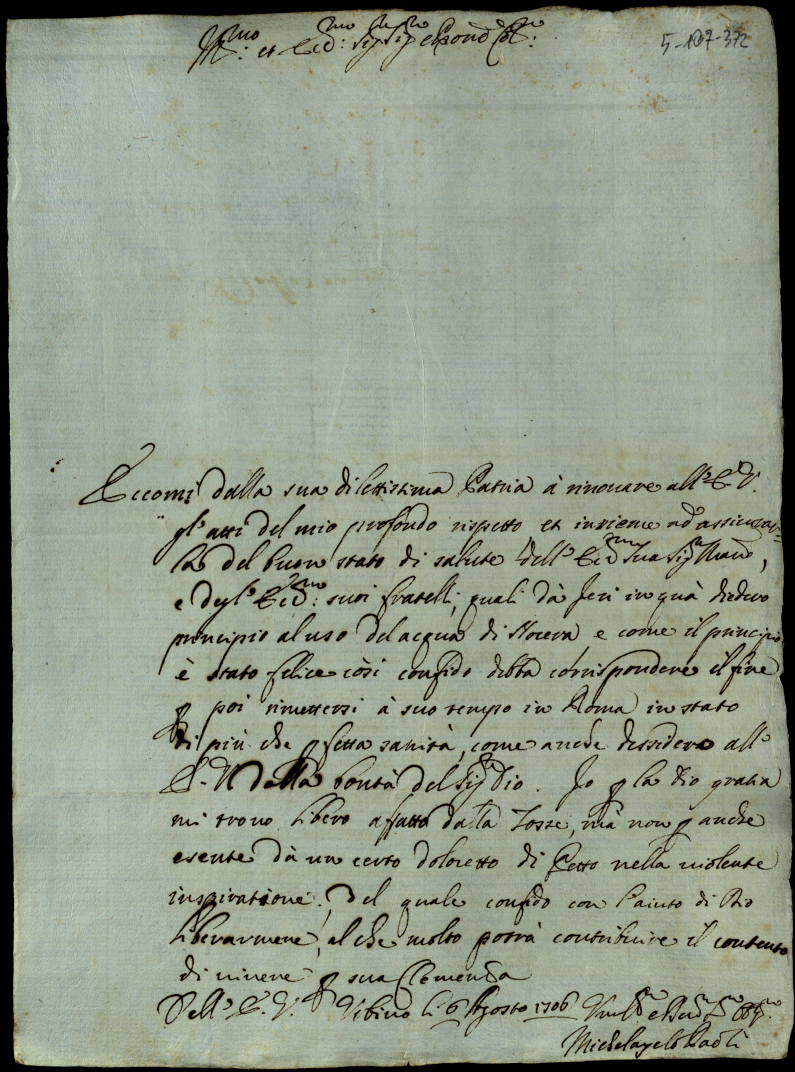 Ill.mo et Ecc.mo Sig.r Sig.r e Pron Col.mo
5-107-372
Eccomi dalla sua dilettissima Patria à rinovare all'E.V.
gl'atti del mio profondo rispetto et insieme ad assicurar=
la del buon stato di salute dell'Ecc.ma Sua Sig.ra Madre,
e degl'Ecc.mi suoi fratelli, quali dà Jeri in quà diedero
principio al uso del acqua di Nocera e come il principio
è stato felice così confido debba corrispondere il fine
p poi rimettersi à suo tempo in Roma in stato
di più che pfetta sanità, come anche dessidero all'
E.V. dalla bontà del Sig.re Dio. Io p la Dio gratia
mi trovo libero affatto dalla Tosse, mà non p anche
esente dà un certo doloretto di Petto nella violente
inspiratione; del quale confido con l'aiuto di Dio
liberarmene, al che molto potrà contribuire il contento
di vivere p sua Clemenza
Dell'E.V. Urbino li 6 Agosto 1706
Michelangelo Paoli